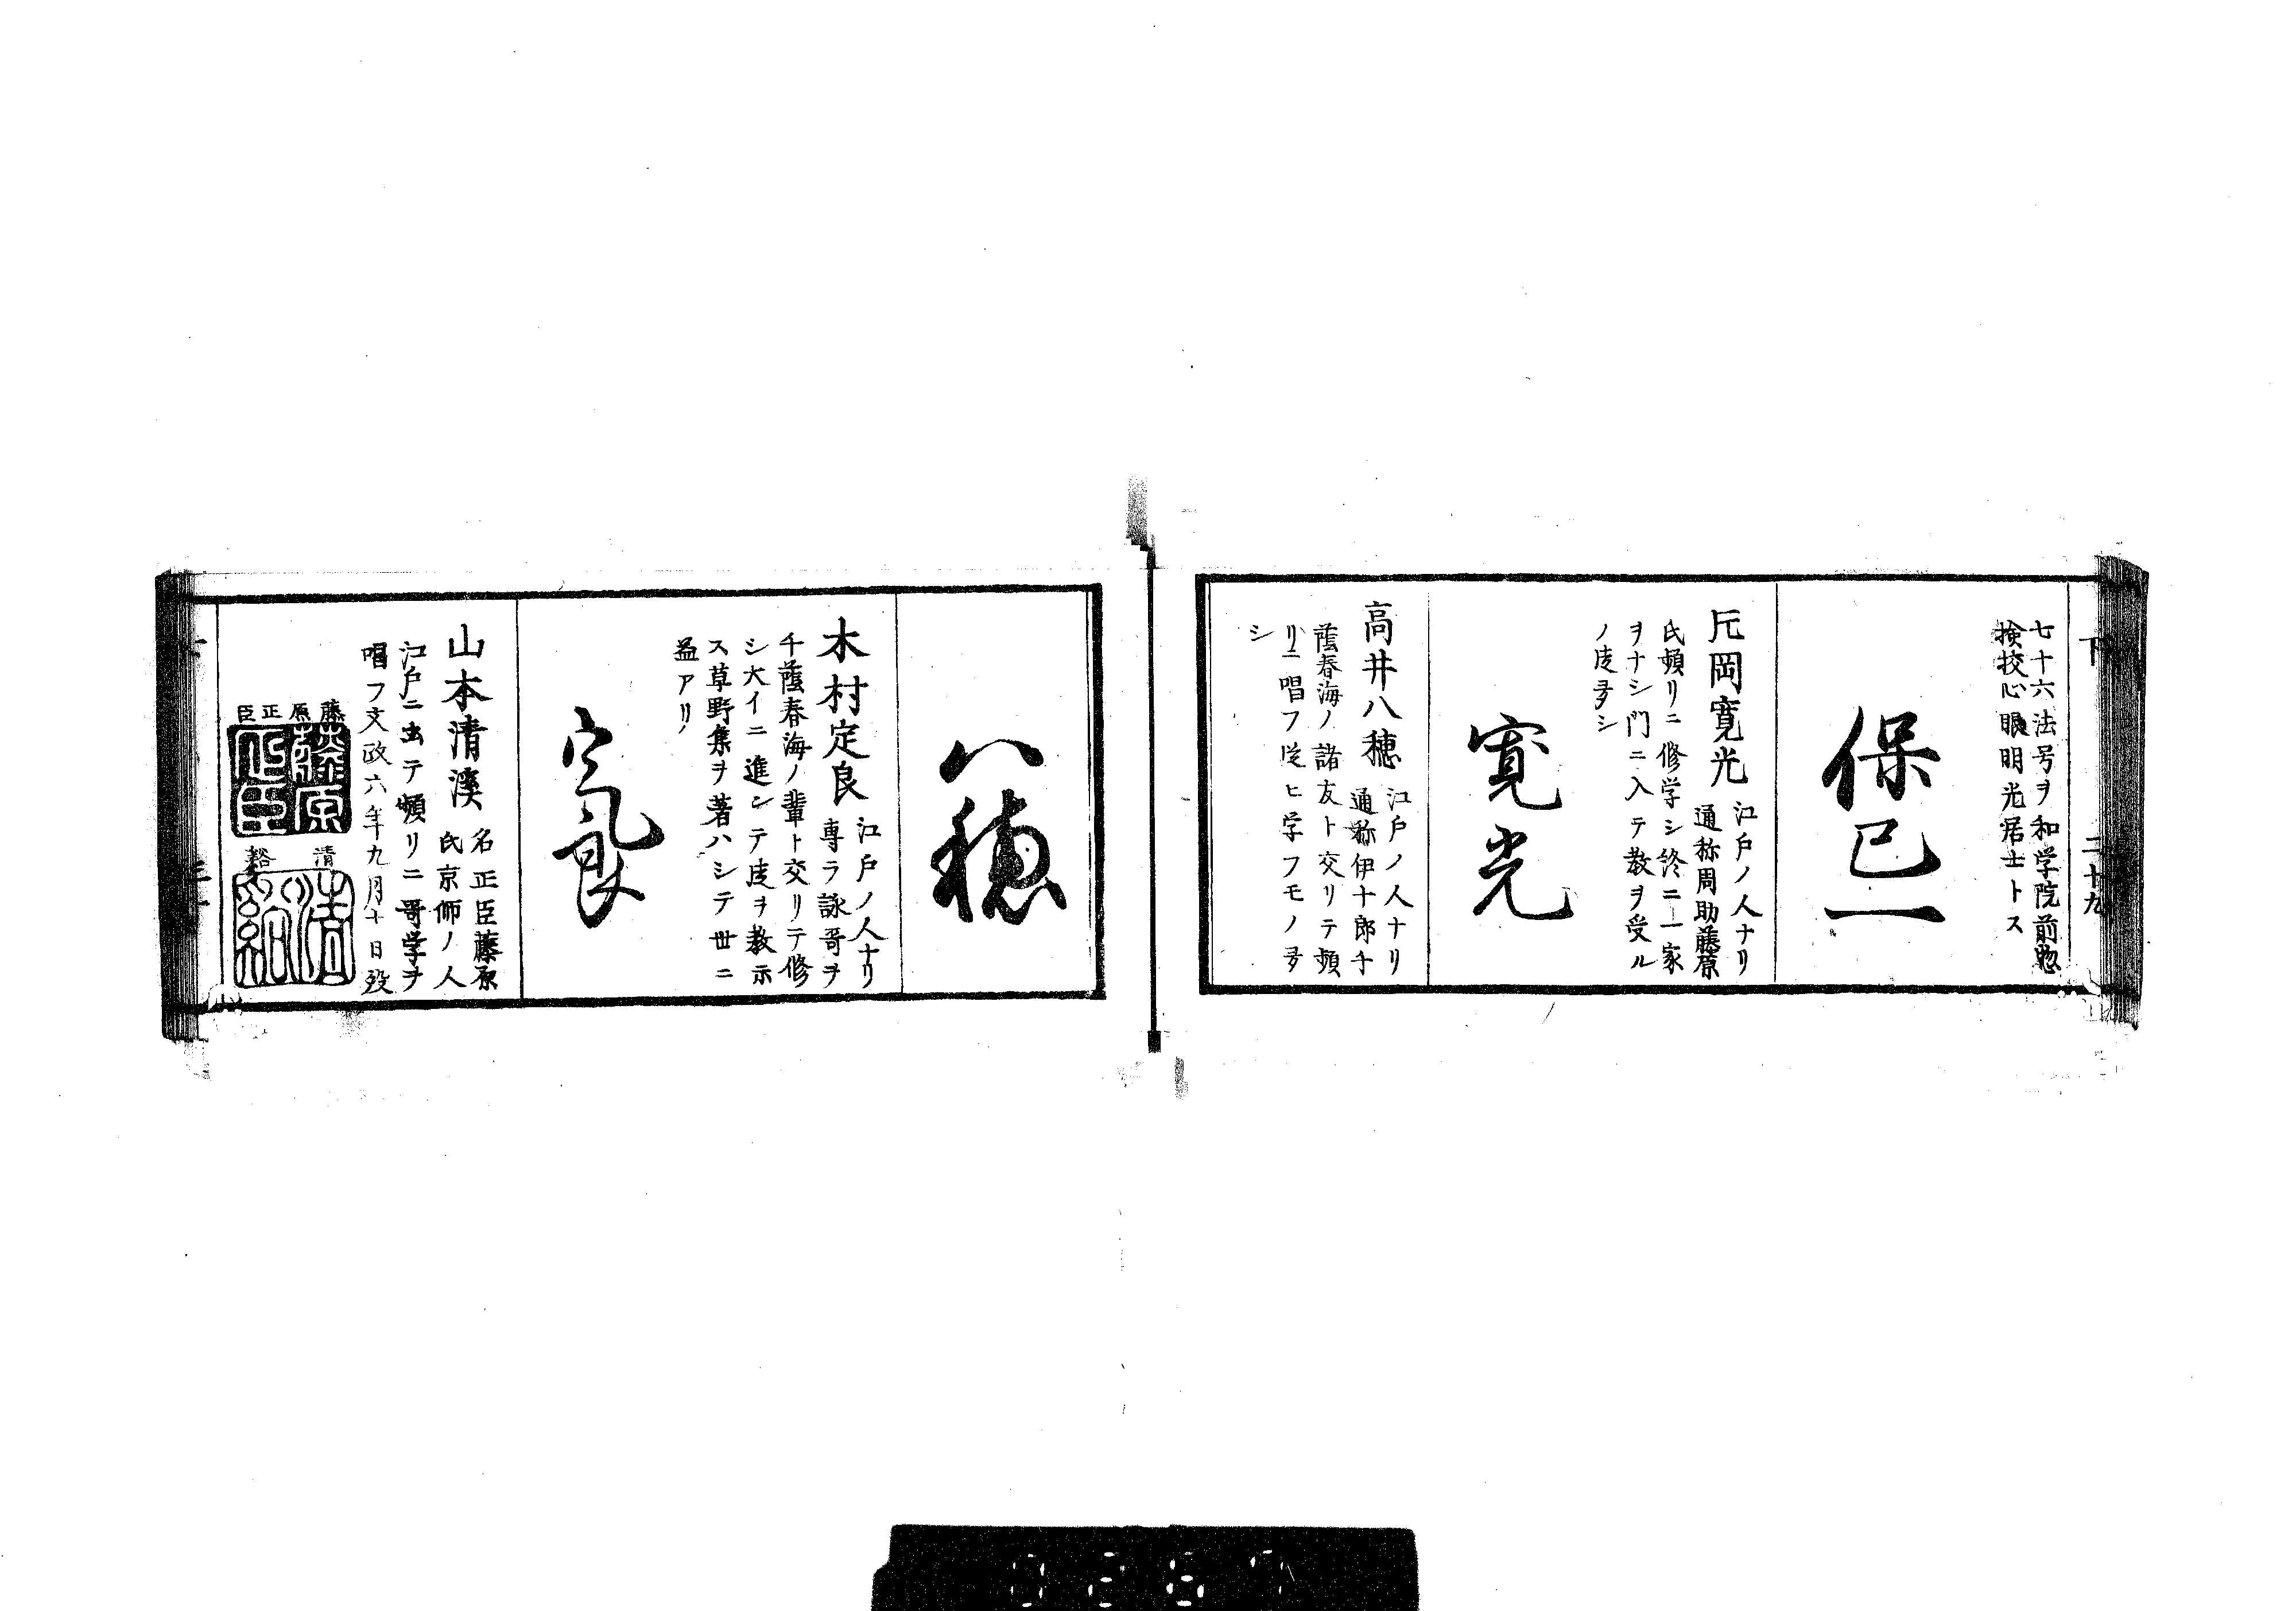 下 二十九
七十六法号ヲ和学院前惣
検校心眼明光居士トス
保己一
元岡寛光 江戸ノ人ナリ
通称周助藤原
氏頻リニ修学シ終ニ一家
ヲナシ門ニ入テ教ヲ受ル
ノ度多シ
寛光
高井八穂 江戸ノ人ナリ
通称伊十郎千
蔭春海ノ諸友ト交リテ頻
リニ唱フ従ヒ学フモノ多
シ
八穂
木村定良 江戸ノ人ナリ
専ラ詠哥ヲ
千蔭春海ノ輩ト交リテ修
シ大イニ進シテ度ヲ教示
ス草野集ヲ著ハシテ世ニ
益アリ
定良
山本清溪 名正臣藤原
氏京師ノ人
江戸ニ出テ頻リニ哥学ヲ
唱フ文政六年九月十日殁
藤原正臣
藤原正臣
清谿